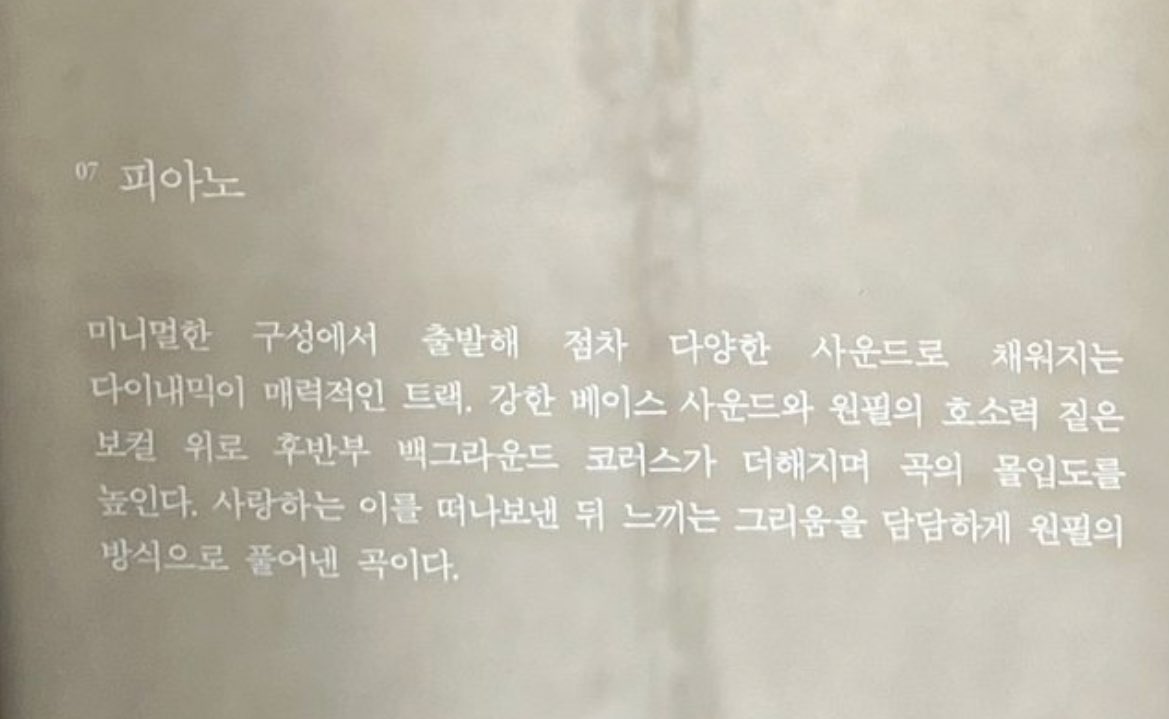 07 피아노
미니멀한 구성에서 출발해 점차 다양한 사운드로 채워지는
다이내믹이 매력적인 트랙. 강한 베이스 사운드와 원필의 호소력 짙은
보컬 위로 후반부 백그라운드 코러스가 더해지며 곡의 몰입도를
높인다. 사랑하는 이를 떠나보낸 뒤 느끼는 그리움을 담담하게 원필의
방식으로 풀어낸 곡이다.